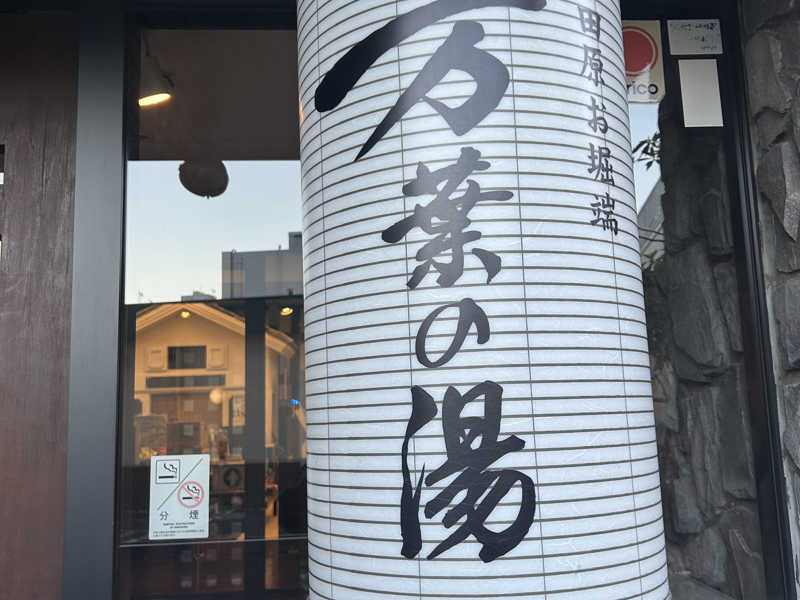 田原お堀端
万葉の湯
rico
分煙